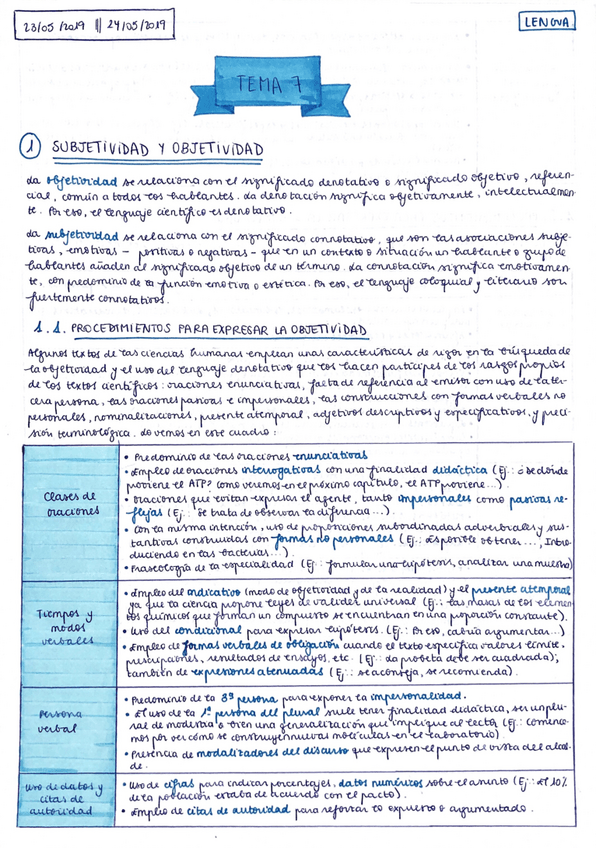 23/05/2019 || 24/05/2019
LENGUA.
TEMA 7
1 SUBJETIVIDAD Y OBJETIVIDAD
La objetividad se relaciona con el significado denotativo o significado objetivo, referen-
cial, común a todos los hablantes. La denotación significa objetivamente, intelectualmen-
te. Por eso, el lenguaje científico es denotativo.
La subjetividad se relaciona con el significado connotativo, que son las asociaciones subje-
tivas, emotivas - positivas o negativas - que en un contexto o situación un hablante o grupo de
hablantes añaden al significado objetivo de un término. La connotación significa emotivamen-
te, con predominio de la función emotiva o estética. Por eso, el lenguaje coloquial y literario son
fuertemente connotativos.
1.1. PROCEDIMIENTOS PARA EXPRESAR LA OBJETIVIDAD
Algunos textos de las ciencias humanas emplean unas características de rigor en la búsqueda de
la objetividad y el uso del lenguaje denotativo que los hacen partícipes de los rasgos propios
de los textos científicos: oraciones enunciativas, falta de referencia al emisor con uso de la ter-
cera persona, las oraciones pasivas e impersonales, las construcciones con formas verbales no
personales, nominalizaciones, presente atemporal, adjetivos descriptivos y especificativos, y preci-
sión terminológica. Lo vemos en este cuadro:
Clases de
oraciones
• Predominio de las oraciones enunciativas
• Empleo de oraciones interrogativas con una finalidad didáctica (Ej.: ¿de dónde
proviene el ATP? Como veremos en el próximo capítulo, el ATP proviene...).
• Oraciones que evitan expresar el agente, tanto impersonales como pasivas re-
flejas (Ej.: se trata de observar la diferencia...).
• Con la misma intención, uso de proposiciones subordinadas adverbiales y sus-
tantivas construidas con formas no personales (Ej.: Es posible obtener..., Intro-
duciendo en las bacterias...).
• Fraseología de la especialidad (Ej.: formular una hipótesis, analizar una muestra)
Tiempos y
modos
verbales
• Empleo del indicativo (modo de objetividad y de la realidad) y el presente atemporal
ya que la ciencia propone leyes de validez universal (Ej.: Las masas de los elemen-
tos químicos que forman un compuesto se encuentran en una proporción constante).
• Uso del condicional para expresar hipótesis. (Ej.: Por eso, cabría argumentar...)
• Empleo de formas verbales de obligación cuando el texto especifica valores límite,
prescripciones, resultados de ensayos, etc. (Ej.: La probeta debe ser cuadrada);
también de expresiones atenuadas (Ej.: se aconseja, se recomienda).
Persona
verbal
• Predominio de la 3ª persona para exponer la impersonalidad.
• El uso de la 1ª persona del plural suele tener finalidad didáctica, ser un plu-
ral de modestia o bien una generalización que implique al lector (Ej.: Comence-
mos por ver cómo se construyen nuevas moléculas en el laboratorio)
• Presencia de modalizadores del discurso que expresen el punto de vista del alcal-
de.
Uso de datos y
citas de
autoridad
• Uso de cifras para indicar porcentajes, datos numéricos sobre el asunto (Ej.: El 10%
de la población estaba de acuerdo con el pacto).
• Empleo de citas de autoridad para reforzar lo expuesto o argumentado.